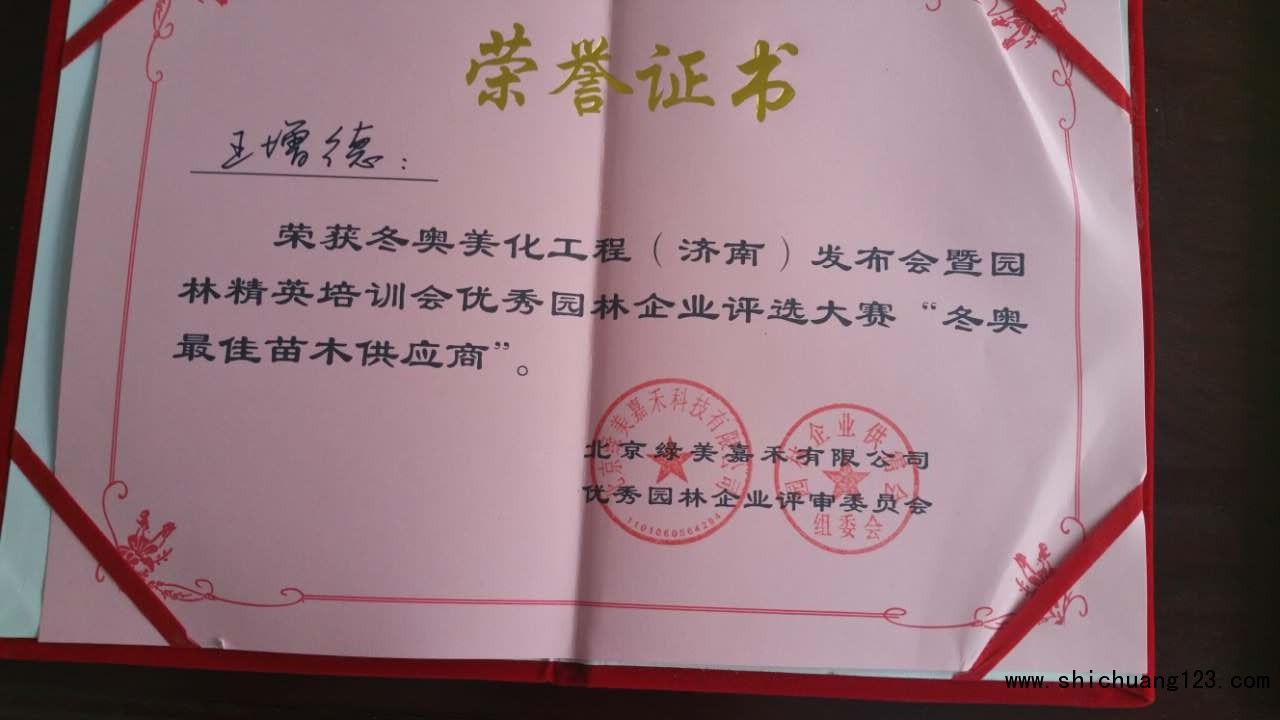 荣誉证书
王增德：
荣获冬奥美化工程（济南）发布会暨园
林精英培训会优秀园林企业评选大赛“冬奥
最佳苗木供应商”。
北京绿美嘉禾有限公司
优秀园林企业评审委员会
北京绿美嘉禾科技有限公司
园林企业供需会
组委会
www.shichuang123.com